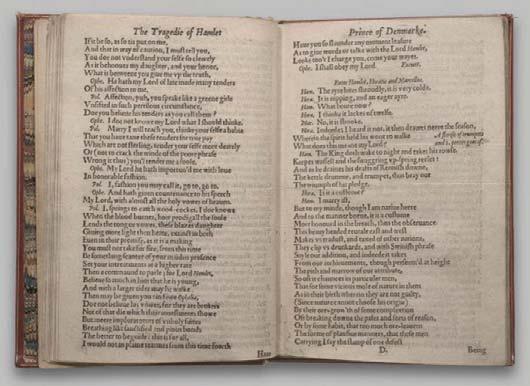 The Tragedie of Hamlet
If it be so, as so tis put on me,
And that in way of caution, I must tell you,
You doe not vnderstand your selfe so cleerely
As it behooues my daughter, and your honor,
What is betweene you giue me vp the truth,
Ophe. He hath my Lord of late made many tenders
Of his affection to me.
Pol. Affection, puh, you speake like a greene girle
Vnsifted in such perrilous circumstance,
Doe you belieue his tenders as you call them?
Ophe. I doe not knowe my Lord what I should thinke.
Pol. Marry I will teach you, thinke your selfe a babie
That you haue tane these tenders for true pay
Which are not sterling, tender your selfe more dearely
Or (not to crack the winde of the poore phrase
Wrong it thus) you'l tender me a foole.
Ophe. My Lord he hath importun'd me with loue
In honorable fashion.
Pol. I, fashion you may call it, go to, go to.
Ophe. And hath giuen countenance to his speech
My Lord, with almost all the holy vowes of heauen.
Pol. I, springs to catch wood-cockes, I doe knowe
When the blood burnes, how prodigall the soule
Lends the tongue vowes, these blazes daughter
Giuing more light then heate, extinct in both
Euen in their promise, as it is a making
You must not take for fire, from this time
Be something scanter of your maiden presence
Set your intreatments at a higher rate
Then a commaund to parle; for Lord Hamlet,
Belieue so much in him that he is young,
And with a larger tider may he walke
Then may be giuen you: in fewe Ophelia,
Doe not belieue his vowes, for they are brokers
Not of that die which their inuestments showe
But meere imploratotors of vnholy suites
Breathing like sanctified and pious bonds
The better to beguide: this is for all,
I would not in plaine tearmes from this time foorth
Haue
Prince of Denmarke.
Haue you so slaunder any moment leasure
As to giue words or talke with the Lord Hamlet,
Looke too't I charge you, come your wayes.
Ophe. I shall obey my Lord. Exeunt.
Enter Hamlet, Horatio and Marcellus.
Ham. The ayre bites shroudly, it is very colde.
Hora. It is nipping, and an eager ayre.
Ham. What houre now?
Hora. I thinke it lackes of twelfe.
Mar. No, it is strooke.
Hora. Indeede; I heard it not, it then drawes neere the season,
Wherein the spirit held his wont to walke A florish of trumpets
What does this meane my Lord? and 2. peeces goes of.
Ham. The King doth wake to night and takes his rowse.
Keepes wassell and the swaggring vp-spring reeles:
And as he draines his drafts of Rennish downe,
The kettle drumme, and trumpet, thus bray out
The triumph of his pledge.
Hora. Is it a custome?
Ham. I marry ist,
But to my minde, though I am natiue heere
And to the manner borne, it is a custome
More honourd in the breach, then the obseruance.
This heauy headed reueale east and west
Makes vs tradust, and taxed of other nations,
They clip vs drunkards, and with Swinish phrase
Soyle our addition, and indeede it takes
From our atchieuements, though perform'd at height
The pith and marrow of our attribute,
So oft it chaunces in particuler men,
That for some vicious mole of nature in them
As in their birth wherein they are not guilty,
(Since nature cannot choose his origin)
By their ore-grow'th of some complextion
Oft breaking downe the pales and forts of reason,
Or by some habit, that too much ore-leauens
The forme of plausiue manners, that these men
Carrying I say the stamp of one defect
D. Being